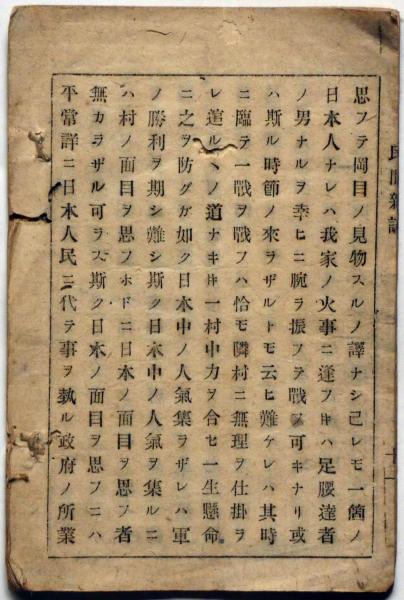 民間雑誌
思フテ岡目ノ見物スルノ譯ナシ己レモ一箇ノ
日本人ナレハ我家ノ火事ニ逢フキハ足腰達者
ノ男ナルヲ幸ヒニ腕ヲ振フテ戰フ可キナリ或
ハ斯ル時節ノ來ラザルトモ云ヒ難ケレハ其時
ニ臨テ一戰ヲ戰フハ恰モ隣村ニ無理ヲ仕掛ヲ
レ遁ルヽノ道ナキキ一村中力ヲ合セ一生懸命
ニ之ヲ防グガ如ク日本中ノ人氣集ヲザレハ軍
ノ勝利ヲ期シ難シ斯ク日本中ノ人氣ヲ集ルニ
ハ村ノ面目ヲ思フホドニ日本ノ面目ヲ思フ者
無カラザル可ラス斯ク日本ノ面目ヲ思フニハ
平常詳ニ日本人民ニ代テ事ヲ執ル政府ノ所業